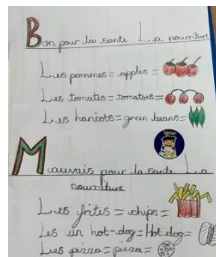 Bon pour la sante La nourriture
Les pommes = apples =
Les tomates = tomatoes =
Les haricots = green beans =
Mauvais pour la sante La
nourriture
Les frites = chips =
Les un hot-dog = Hot dog =
Les pizza = pizza =